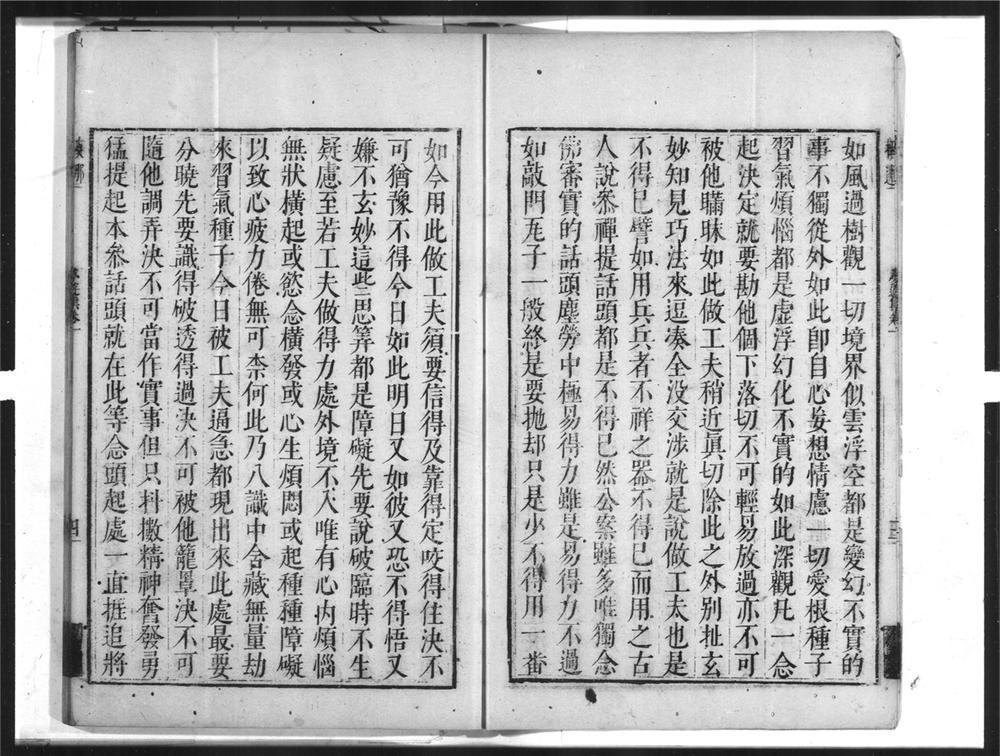 如風過樹觀一切境界似雲浮空都是變幻不實的
事不獨從外如此卽自心妄想情慮一切愛根種子
習氣煩惱都是虛浮幻化不實的如此深觀凡一念
起決定就要勘他個下落切不可輕易放過亦不可
被他瞞昧如此做工夫稍近眞切除此之外別扯玄
妙知見巧法來逗凑全没交涉就是說做工夫也是
不得已譬如用兵兵者不祥之器不得已而用之古
人說叅禪提話頭都是不得已然公案雖多唯獨念
佛審實的話頭塵勞中極易得力雖是易得力不過
如敲門瓦子一般終是要抛却只是少不得用一番
如今用此做工夫須要信得及靠得定咬得住決不
可猶豫不得今日如此明日又如彼又恐不得悟又
嫌不玄妙這些思筭都是障礙先要說破臨時不生
疑慮至若工夫做得力處外境不入唯有心內煩惱
無狀橫起或慾念橫發或心生煩悶或起種種障礙
以致心疲力倦無可柰何此乃八識中含藏無量劫
來習氣種子今日被工夫逼急都現出來此處最要
分曉先要識得破透得過決不可被他籠罩決不可
隨他調弄決不可當作實事但只抖擻精神奮發勇
猛提起本叅話頭就在此等念頭起處一直捱追將